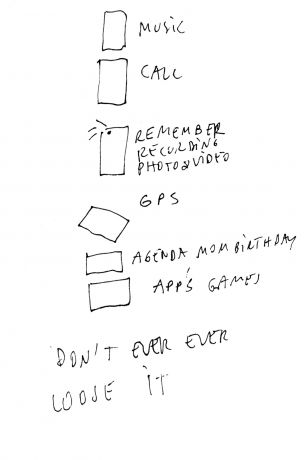 MUSIC
CALL
REMEMBER
RECORDING
PHOTO & VIDEO
GPS
AGENDA MOM BIRTHDAY
APP'S GAMES
DON'T EVER EVER
LOOSE IT